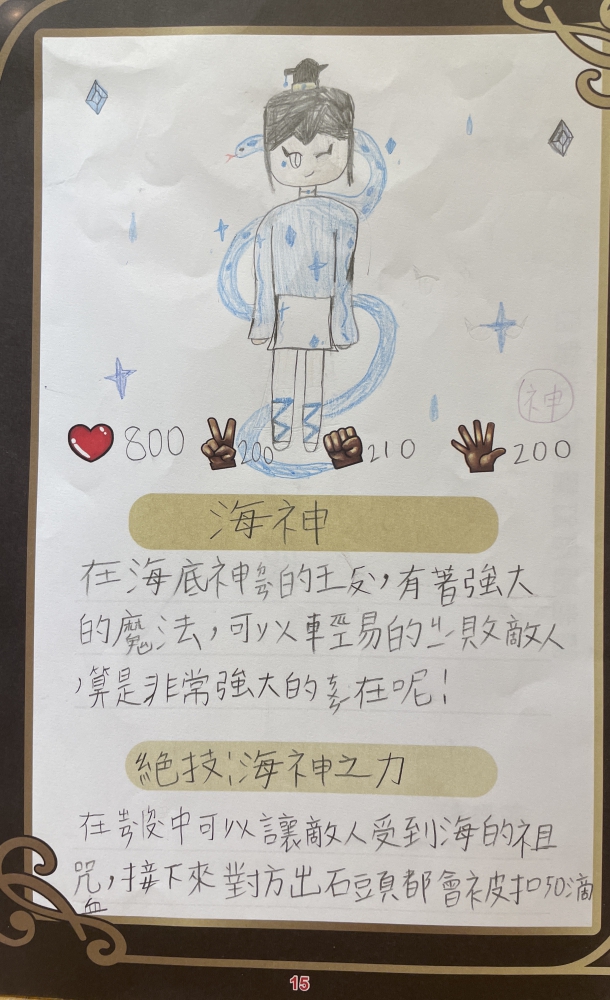 神
800 200 210 200
海神
在海底神的王,有著強大
的魔法,可以輕易的敗敵人
,算是非常強大的在呢!
絕技:海神之力
在中可以讓敵人受到海的祖
咒,接下來對方出石頭都會被扣50滴
血
15